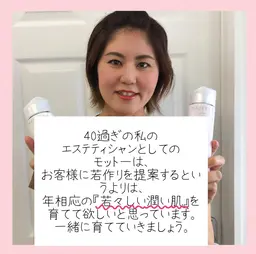 40過ぎの私の
エステティシャンとしての
モットーは、
お客様に若作りを提案するとい
うよりは、
年相応の『若々しい潤い肌』を
育てて欲しいと思っています。
一緒に育てていきましょう。